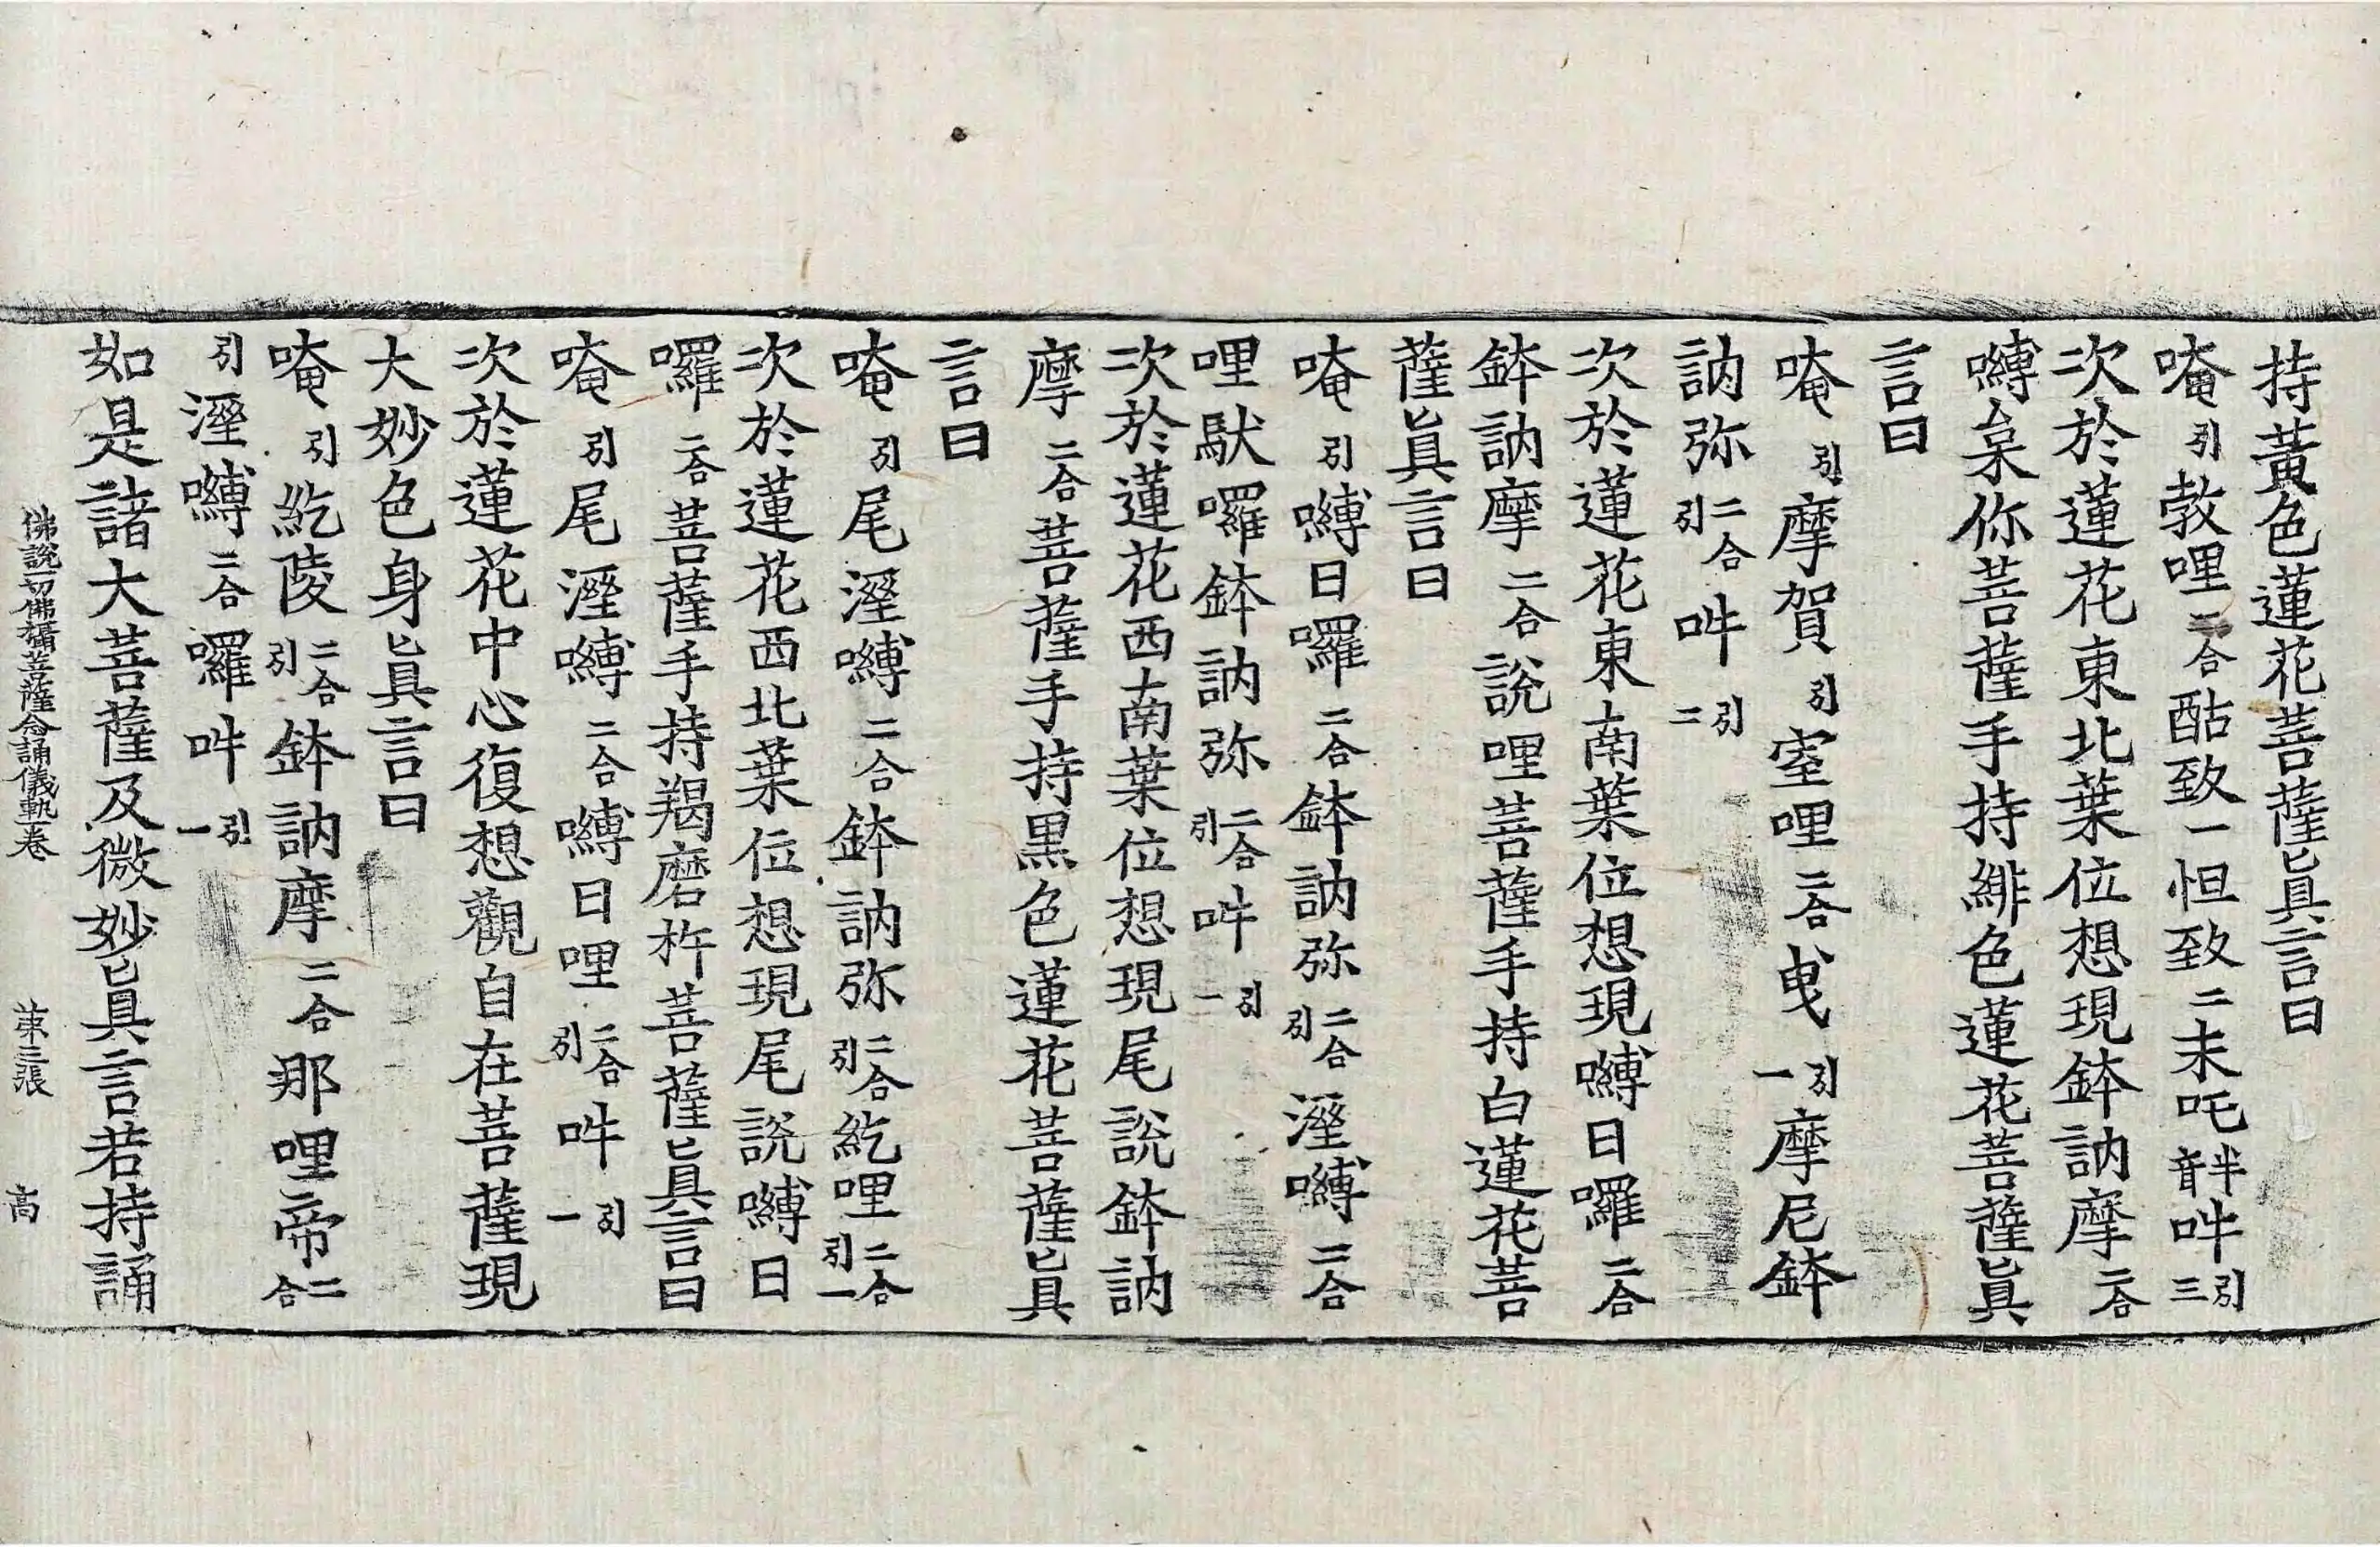 持黃色蓮花菩薩眞言曰
唵引敎哩二合酤致一怛致二未吒半音吽引三
次於蓮花東北葉位想現鉢訥摩二合
嚩枲你菩薩手持緋色蓮花菩薩眞
言曰
唵引摩賀引室哩二合曳引一摩尼鉢
訥弥二合引吽引二
次於蓮花東南葉位想現嚩日囉二合
鉢訥摩二合說哩菩薩手持白蓮花菩
薩眞言曰
唵引嚩日囉二合鉢訥弥二合引濕嚩二合
哩馱囉鉢訥弥二合引吽引一
次於蓮花西南葉位想現尾說鉢訥
摩二合菩薩手持黑色蓮花菩薩眞
言曰
唵引尾濕嚩二合鉢訥弥二合引紇哩二合引一
次於蓮花西北葉位想現尾說嚩日
囉二合菩薩手持羯磨杵菩薩眞言曰
唵引尾濕嚩二合嚩日哩二合引吽引一
次於蓮花中心復想觀自在菩薩現
大妙色身眞言曰
唵引紇陵二合引鉢訥摩二合那哩帝二合
引濕嚩二合囉吽引一
如是諸大菩薩及微妙眞言若持誦
佛說一切佛攝菩薩念誦儀軌卷 第三張 高